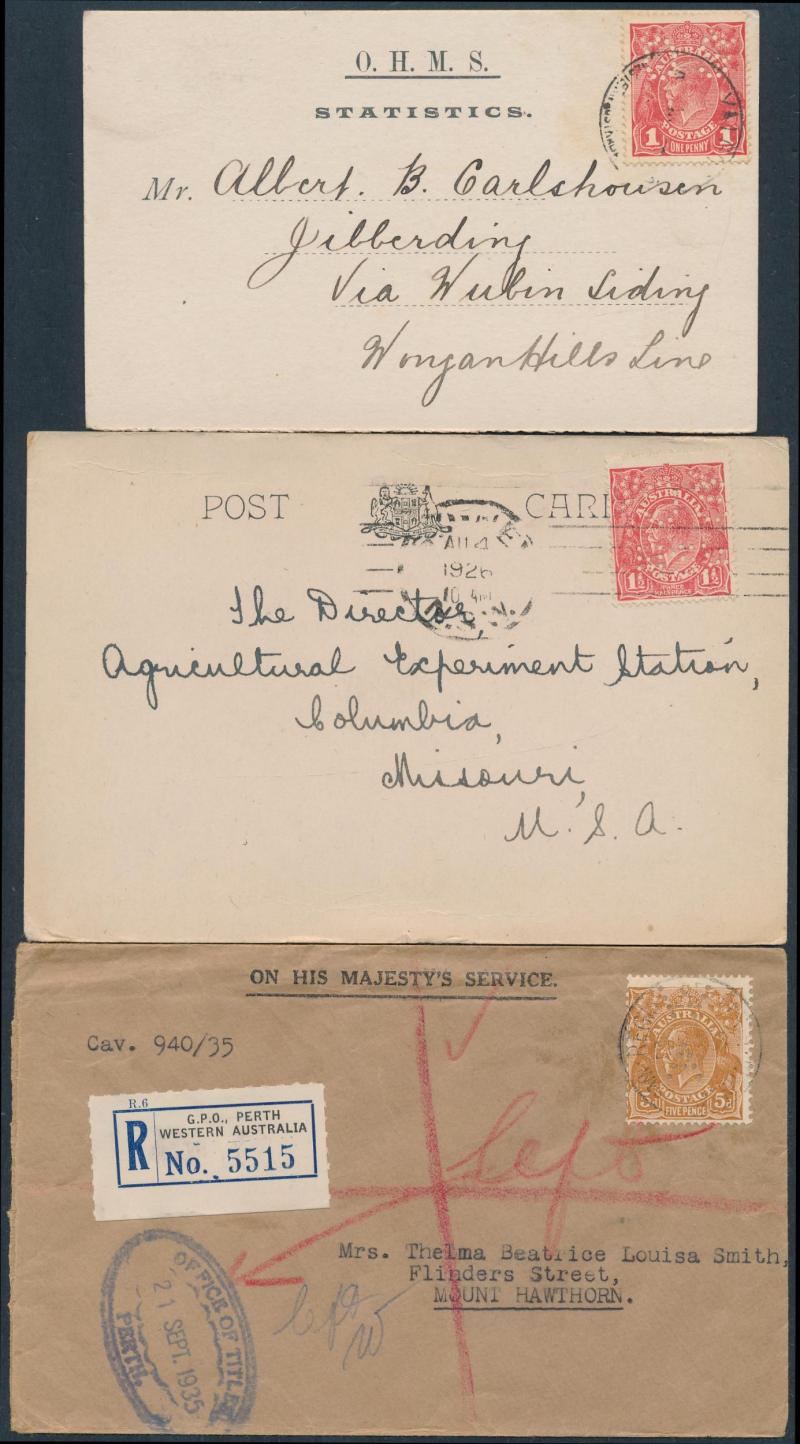 O. H. M. S.
STATISTICS.
AUSTRALIA
1 POSTAGE 1
ONE PENNY
Mr. Albert. B. Carlshousen
Jibberding
Via Wubin Siding
Wongan Hills Line
POST CARD
AUSTRALIA
1½ POSTAGE 1½
THREE HALFPENCE
AU 4
1926
10 AM
The Director,
Agricultural Experiment Station,
Columbia,
Missouri,
U. S. A.
ON HIS MAJESTY'S SERVICE.
Cav. 940/35
AUSTRALIA
POSTAGE
5D FIVE PENCE 5D
R.6
G.P.O., PERTH
WESTERN AUSTRALIA
R No. 5515
left
Mrs. Thelma Beatrice Louisa Smith,
Flinders Street,
MOUNT HAWTHORN.
left
W
OFFICE OF TITLES
21 SEPT. 1935
PERTH.